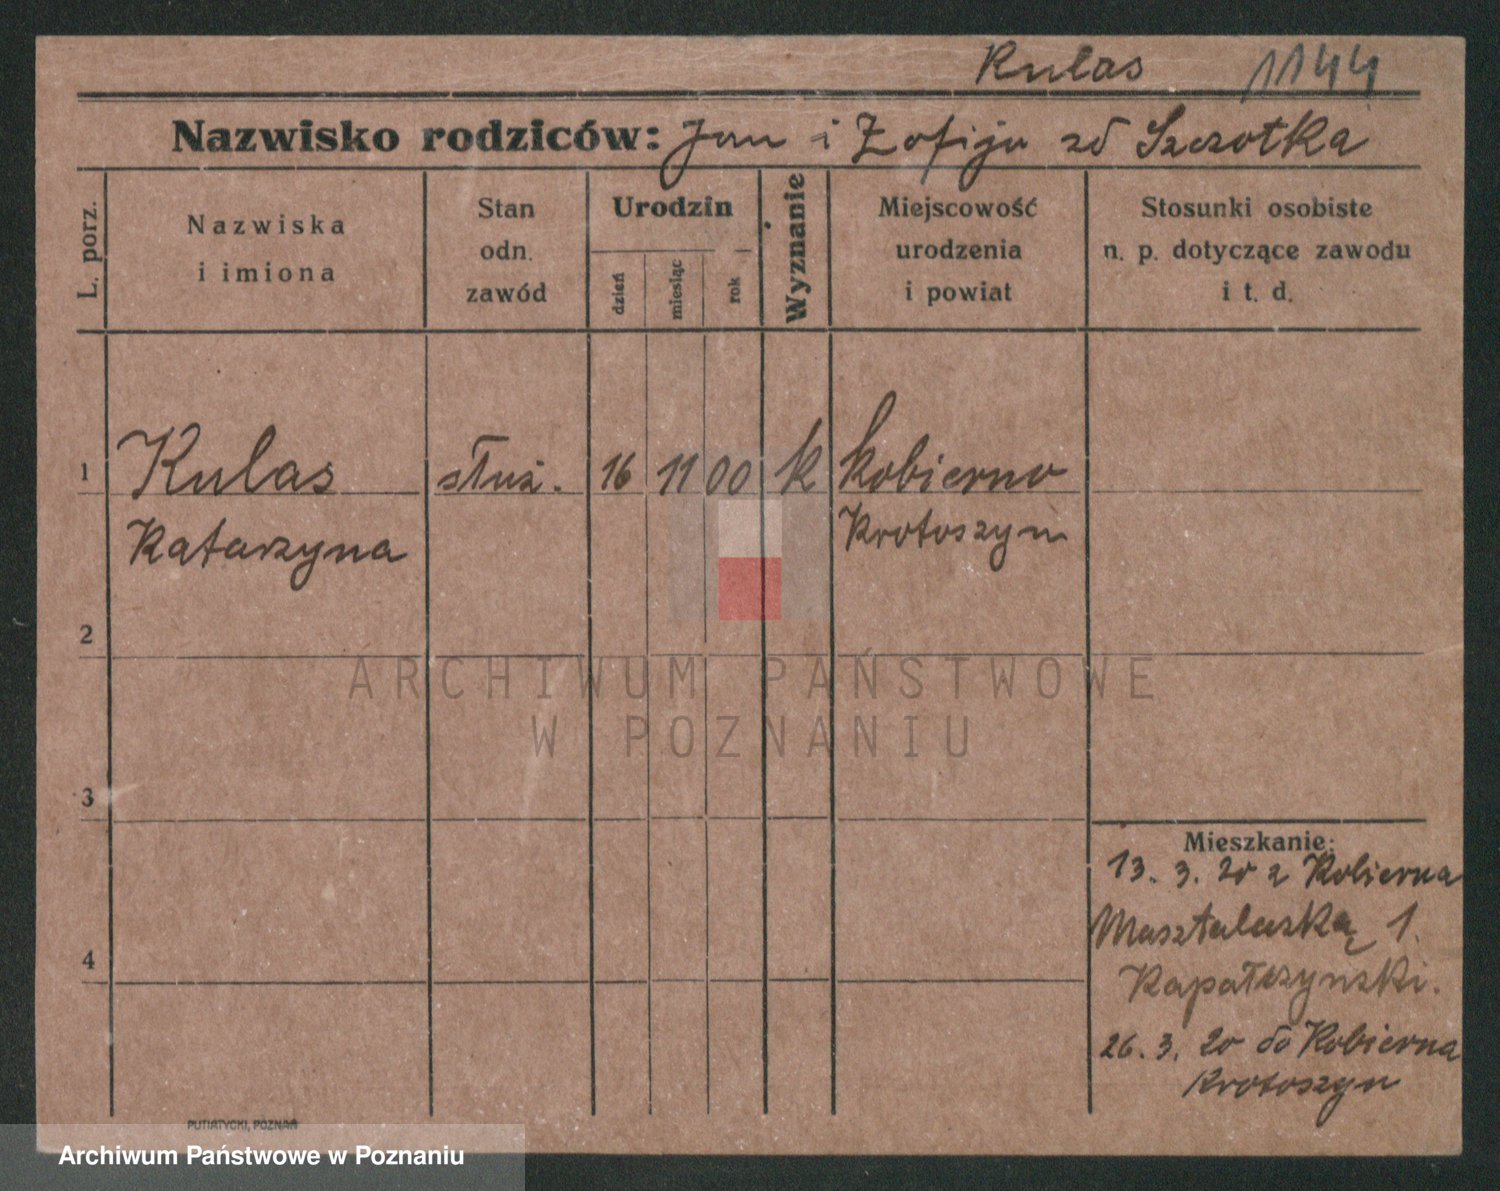 Kulas 1144
Nazwisko rodziców: Jan i Zofija zd Szczotka
L. porz.
Nazwiska
i imiona
Stan
odn.
zawód
Urodzin
dzień
miesiąc
rok
Wyznanie
Miejscowość
urodzenia
i powiat
Stosunki osobiste
n. p. dotyczące zawodu
i t. d.
1 Kulas służ. 16 11 00 k Kobierno
Katarzyna Krotoszyn
2
3
4
Mieszkanie:
13. 3. 20 z Kobierna
1.
26. 3. 20 do Kobierna
Krotoszyn
PUTIATYCKI, POZNAŃ
ARCHIWUM PAŃSTWOWE
W POZNANIU
Archiwum Państwowe w Poznaniu